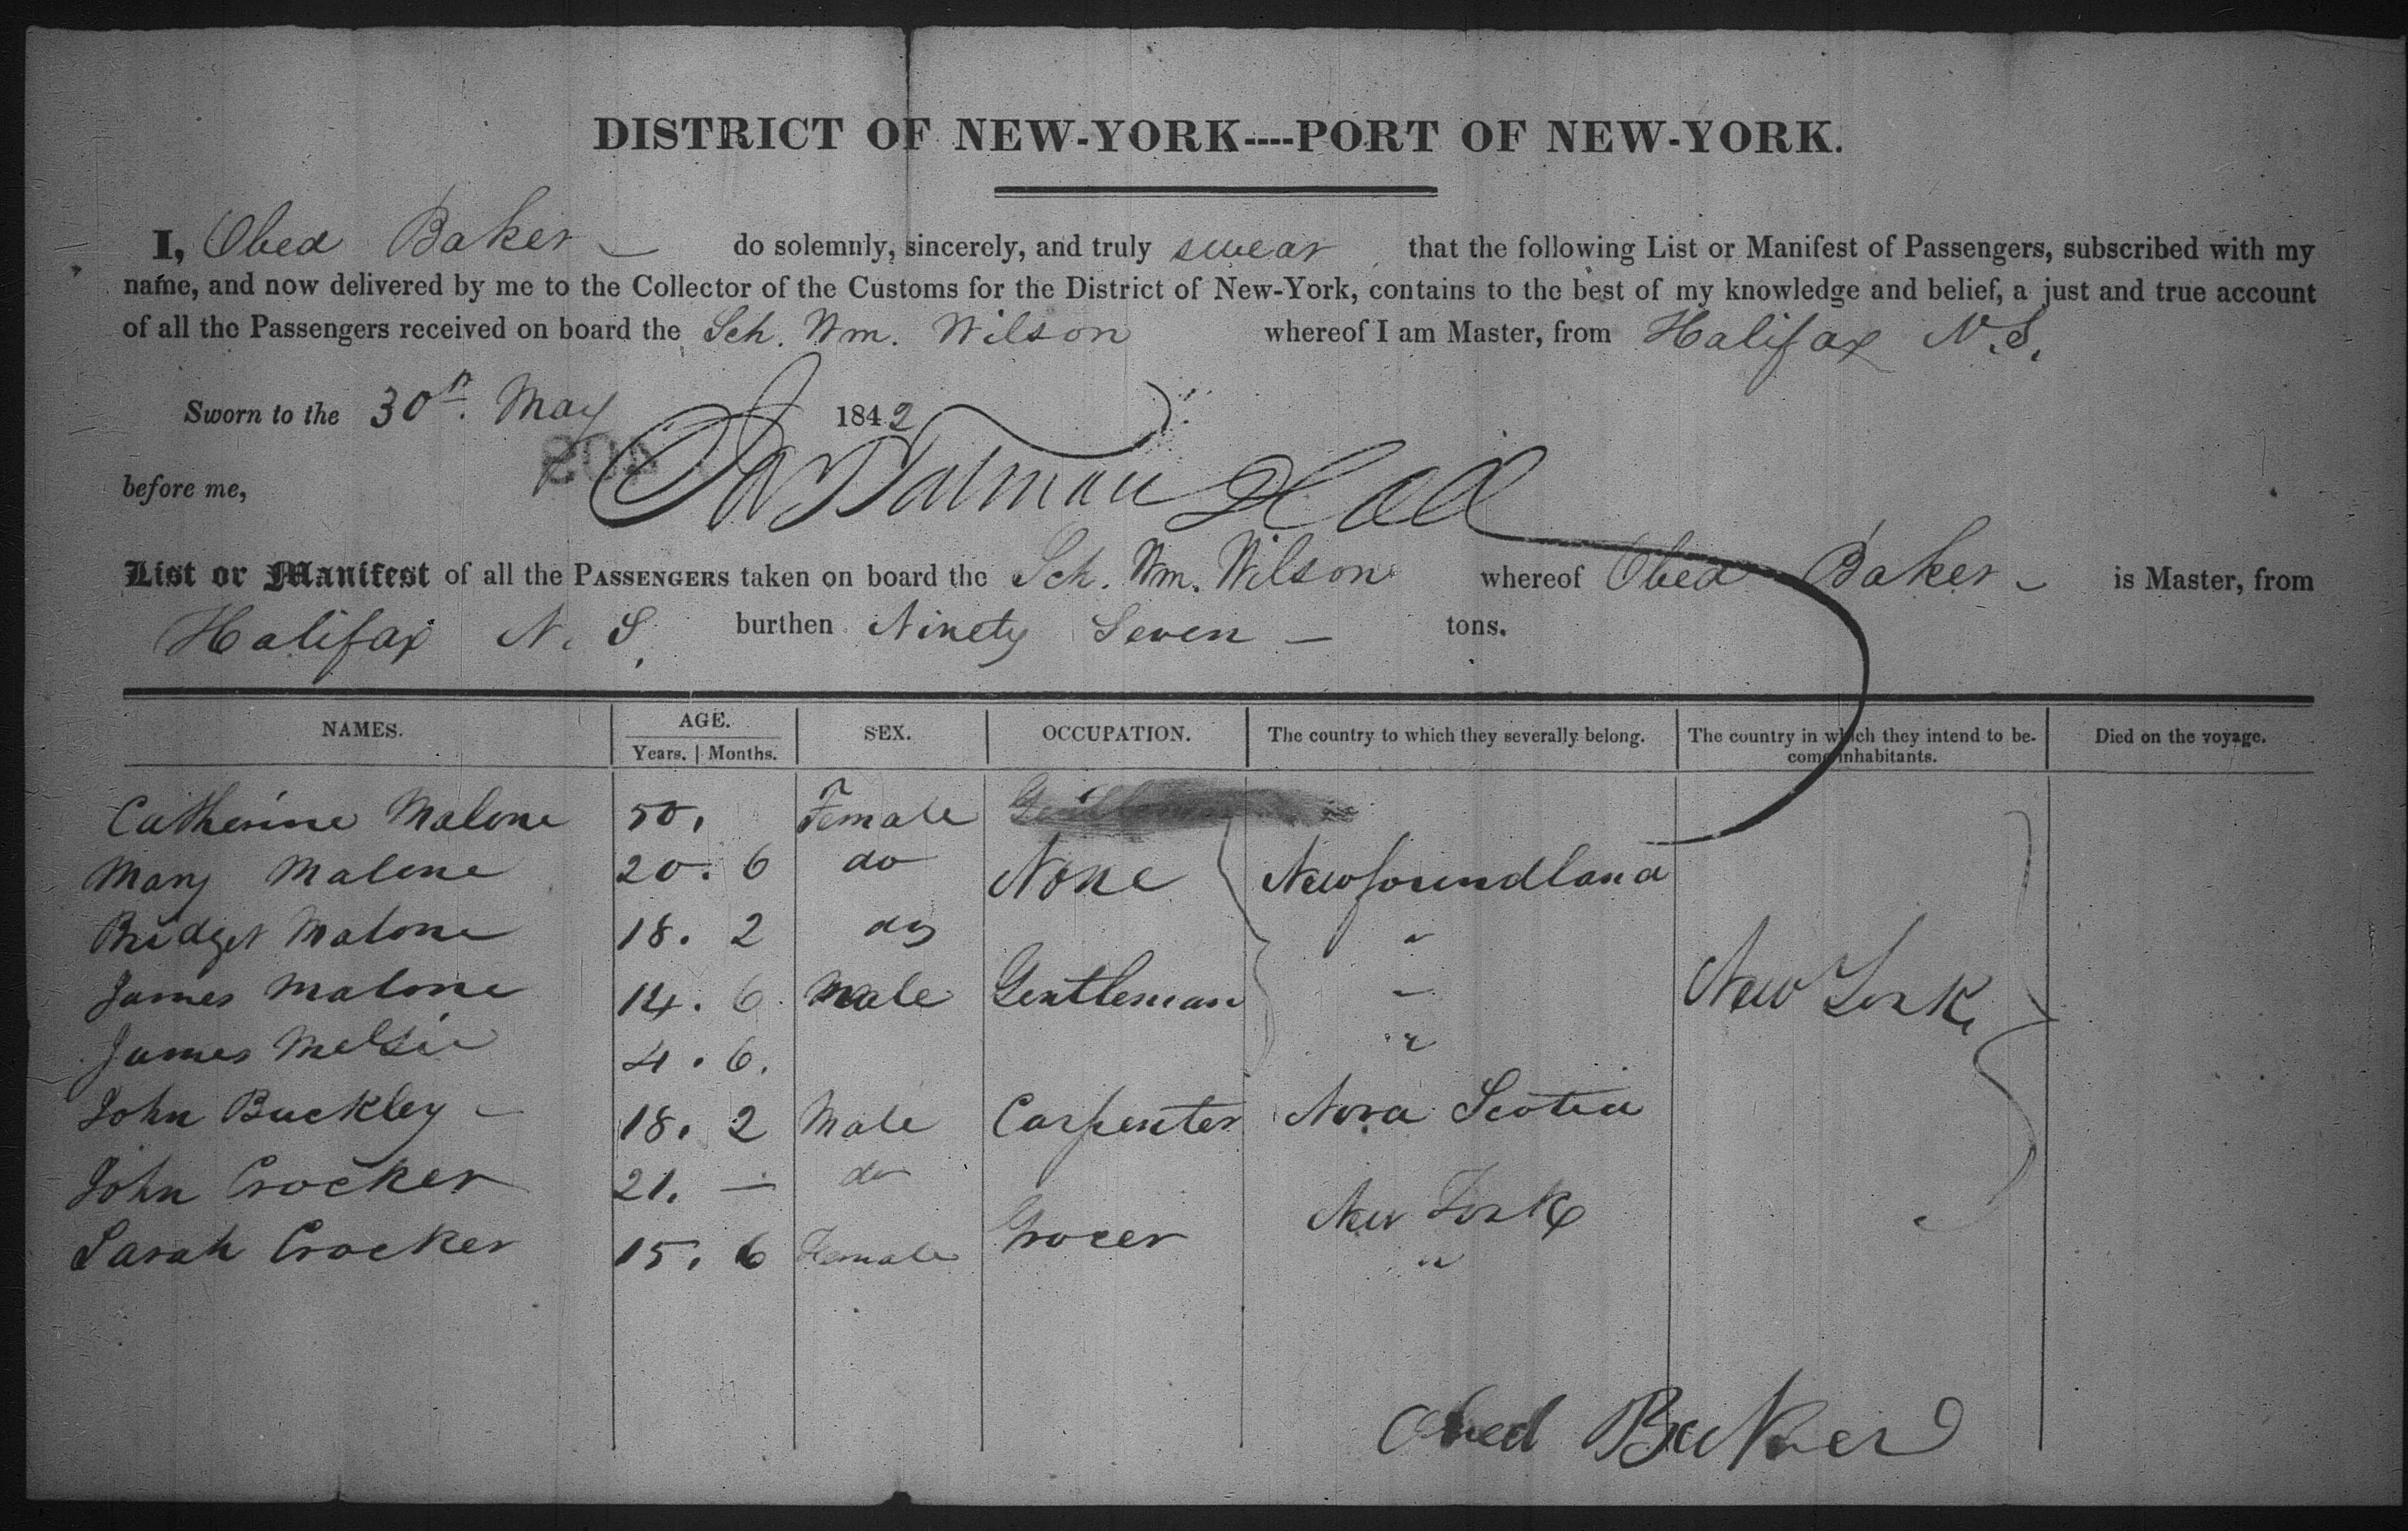 DISTRICT OF NEW-YORK----PORT OF NEW-YORK.
I, Obed Baker — do solemnly, sincerely, and truly swear that the following List or Manifest of Passengers, subscribed with my
name, and now delivered by me to the Collector of the Customs for the District of New-York, contains to the best of my knowledge and belief, a just and true account
of all the Passengers received on board the Sch. Wm. Wilson whereof I am Master, from Halifax N.S.
Sworn to the 30th. May 1842
before me,
List or Manifest of all the PASSENGERS taken on board the Sch. Wm. Wilson whereof Obed Baker — is Master, from
Halifax N. S. burthen Ninety Seven — tons.
NAMES. AGE. SEX. OCCUPATION. The country to which they severally belong. The country in which they intend to be- Died on the voyage.
Years. Months. come inhabitants.
Catherine Malone 50. Female
Mary Malone 20. 6 do None Newfoundland
Bridget Malone 18. 2 do "
James Malone 14. 6 Male Gentleman " New York
James 4. 6. "
John Buckley — 18. 2 Male Carpenter Nova Scotia
John Crocker 21. — do New York
Sarah Crocker 15. 6 Female Grocer "
Obed Baker